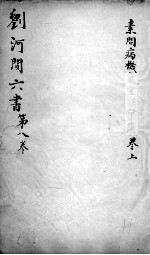 素問病機
卷上
劉河間六書
第八卷